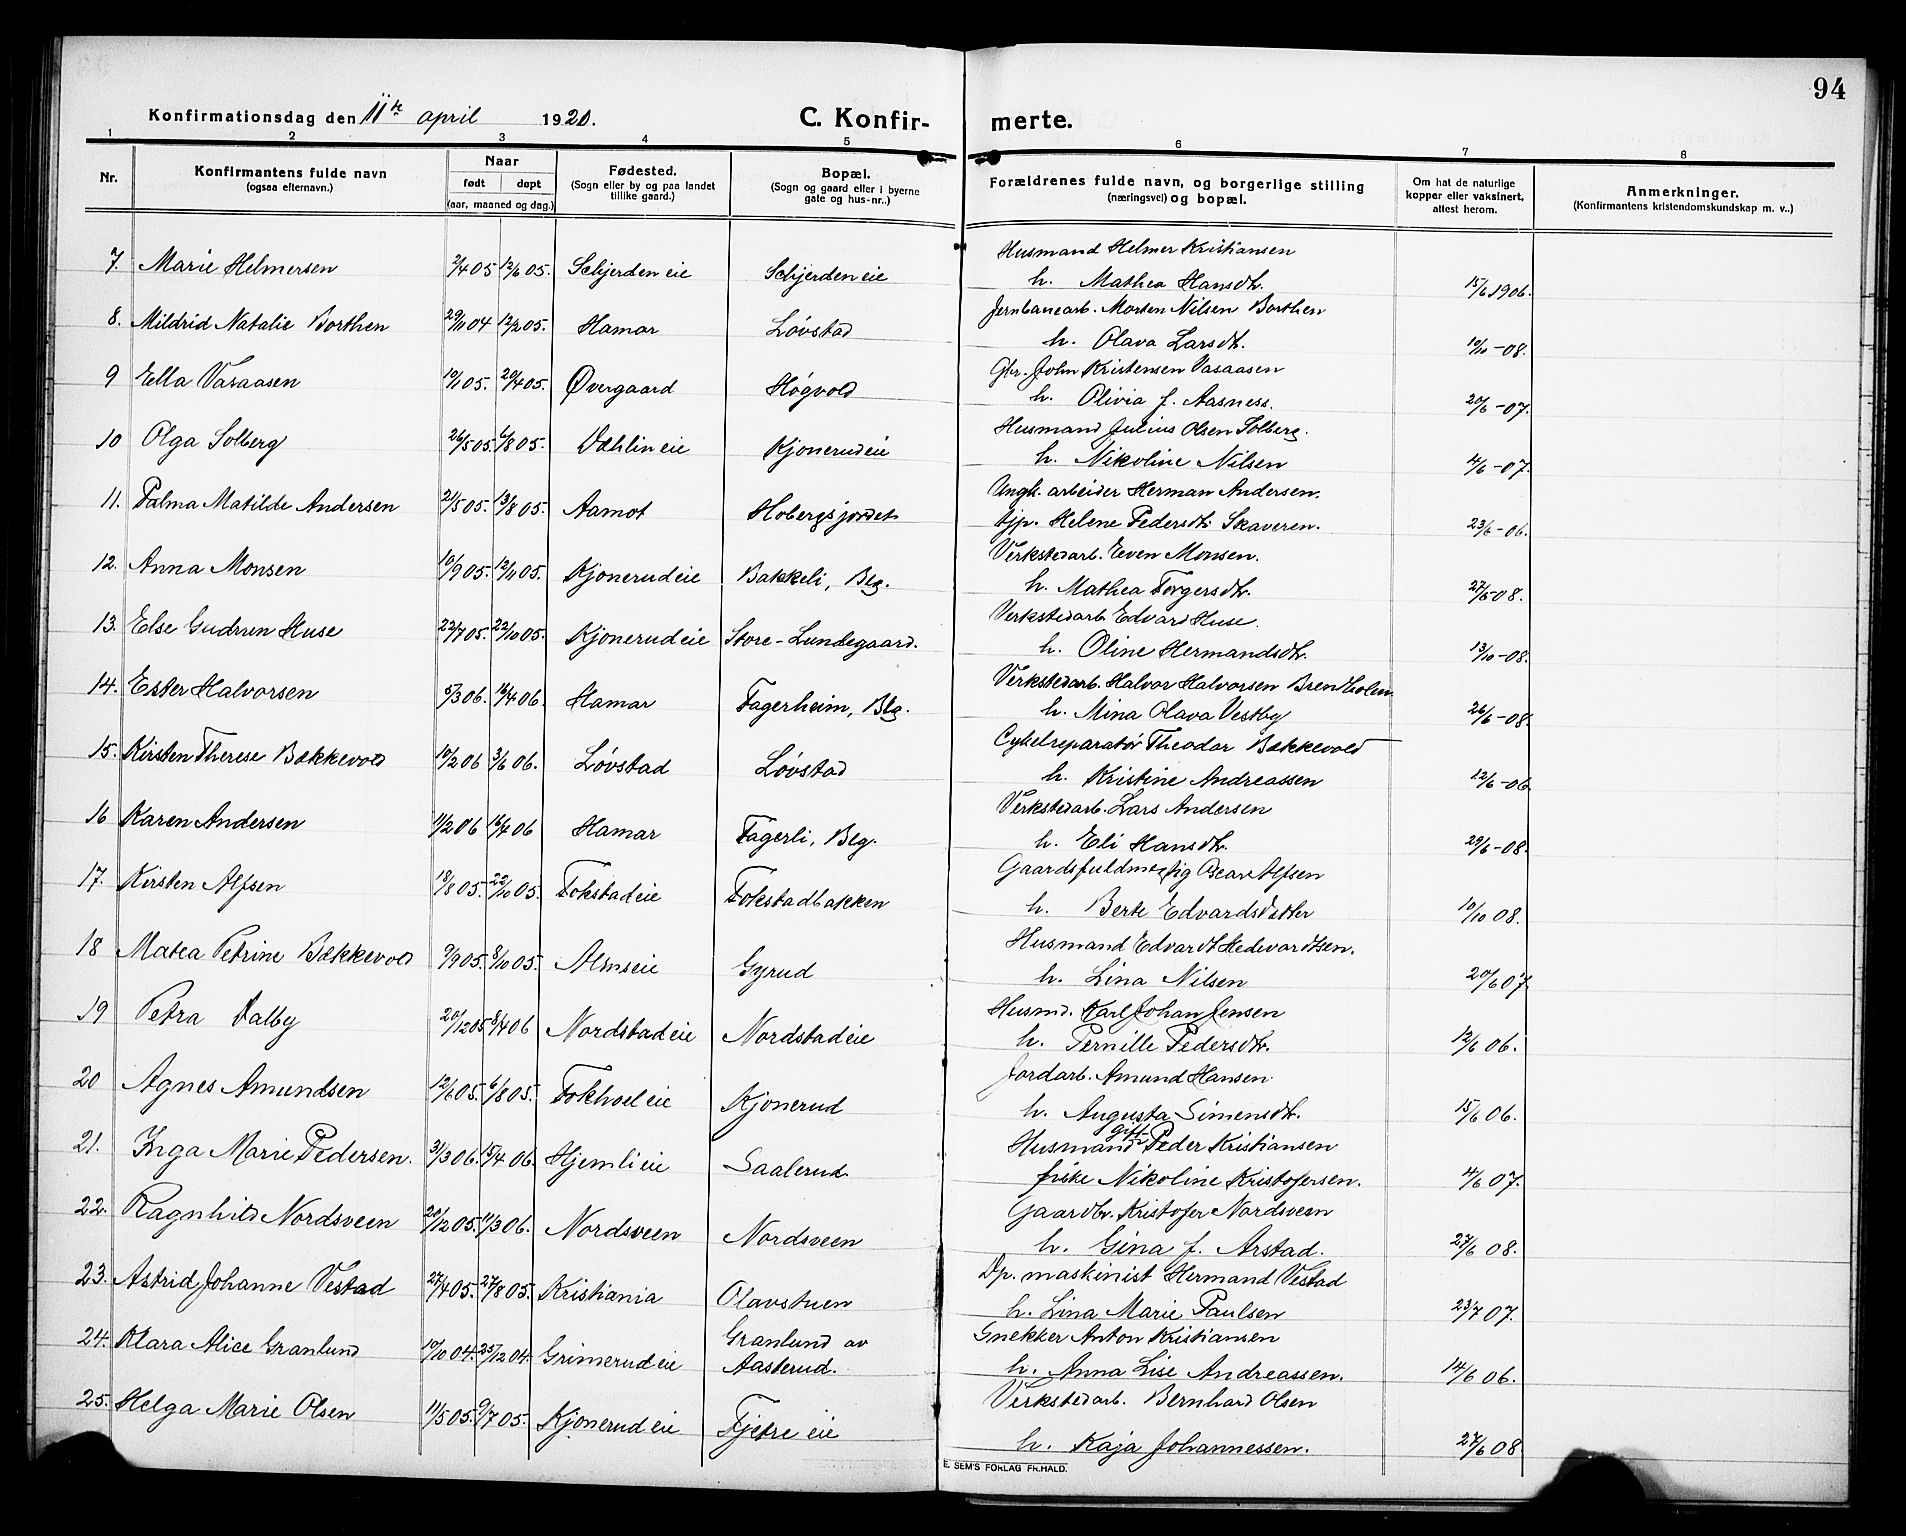 94
Konfirmationsdag den 11te april 1920.
C. Konfirmerte.
1 2 3 4 5 6 7 8
Nr.
Konfirmantens fulde navn
(ogsaa efternavn.)
Naar
født døpt
(aar, maaned og dag.)
Fødested.
(Sogn eller by og paa landet
tillike gaard.)
Bopæl.
(Sogn og gaard eller i byerne
gate og hus-nr..)
Forældrenes fulde navn, og borgerlige stilling
(næringsvei) og bopæl.
Om hat de naturlige
kopper eller vaksinert,
attest herom.
Anmerkninger.
(Konfirmantens kristendomskundskap m. v..)
7. Marie Helmersen 2/4 05 12/6 05. Schjerden eie Schjerden eie Husmand Helmer Kristiansen
h. Mathea Hansdtr. 15/6 1906.
8. Mildrid Natalie Borthen 29/11 04 12/2 05. Hamar Løvstad Jernbanearb. Morten Nilsen Borthen
h. Olava Larsdtr. 10/10 - 08.
9 Ella Vasaasen 19/1 05. 20/4 05. Øvergaard Høgvold Gbr. John Kristensen Vasaasen
h. Olivia f. Aasness. 20/6 - 07.
10 Olga Solberg 26/5 05. 6/8 05. Dæhlin eie Kjonerudeie Husmand Julius Olsen Solberg.
h. Nikoline Nilsen 4/6 - 07.
11. Palma Matilde Andersen 21/5 05. 13/8 05. Aamot Hobergsjordet Ungk. arbeider Herman Andersen.
Pjp. Helene Pedersdtr. Skaveren. 23/6 - 06.
12. Anna Monsen 10/9 05. 12/11 05. Kjonerud eie Bakkeli, Blg. Verkstedarb. Even Monsen.
h. Mathea Torgersdtr. 27/6 - 08.
13. Else Gudrun Huse 22/7 05. 22/10 05. Kjonerud eie Store-Lundegaard. Verkstedarb Edvard Huse.
h. Oline Hermandsdtr. 13/10 - 08.
14. Ester Halvorsen 5/3 06. 16/4 06. Hamar Fagerheim, Blg. Verkstedarb. Halvor Halvorsen Brendholen
h. Mina Olava Vestby 26/6 - 08.
15. Kirsten Therese Bækkevold 19/2 06 3/6 06. Løvstad Løvstad Cykelreparatør Theodor Bækkevold
h. Kristine Andreassen 12/6 - 06.
16 Karen Andersen 11/2 06 16/4 06 Hamar Fagerli, Blg. Verkstedarb. Lars Andersen
h. Eli Hansdtr. 29/6 - 08.
17. Kirsten Alfsen 18/8 05. 22/10 05. Fokstad eie Fokstadbakken Gaardsfuldmægtig Oscar Alfsen
h. Berte Edvardsdatter 10/10 08.
18 Matea Petrine Bækkevold 9/9 05. 8/10 05. Almseie Gyrud Husmand Edvardt Hedevardtsen.
h. Lina Nilsen 20/6 07.
19 Petra Dalby 20/12 05 8/4 06 Nordstad eie Nordstad eie Husmd. Karl Johan Jensen
h. Pernille Pedersdtr. 12/6 06.
20 Agnes Amundsen 12/6 05. 6/8 05. Fokhoel eie Kjonerud Jordarb. Amund Hansen
h. Augusta Simensdtr. 15/6 06.
21. Inga Marie Pedersen. 31/3 06. 15/4 06. Hjemli eie Saalerud Husmand gift Peder Kristiansen
friske Nikoline Kristofersen. 4/6 07.
22. Ragnhild Nordsveen 20/12 05. 11/3 06. Nordsveen Nordsveen Gaardbr. Kristofer Nordsveen
h. Gina f. Arstad. 27/6 08.
23. Astrid Johanne Vestad 27/4 05. 27/8 05. Kristiania Olavstuen Dp. maskinist Hermand Vestad
h. Lina Marie Paulsen 23/7 07.
24. Klara Alice Granlund 10/10 04. 25/12 04. Grimerud eie Granlund av
Aasterud. Snekker Anton Kristiansen
h. Anna Lise Andreassen. 14/6 06.
25. Helga Marie Olsen 11/5 05. 9/7 05. Kjonerud eie Fjetre eie Verkstedarb. Bernhard Olsen
h. Kaja Johannessen. 27/6 08
E. SEM'S FORLAG FR.HALD.